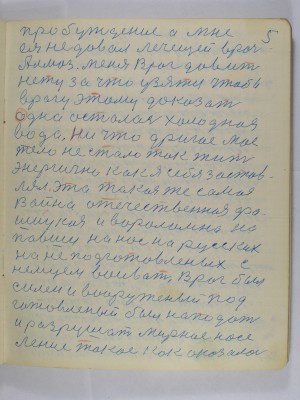 5
пробуждение а мне
ся не довал лечущей врог.
Алмоз. меня Врог довит
нету за что узяти чтобы
врогу этому доказат
одна осталас холодная
вода. Ни что другое мое
тело не стало так жит
энергично как я себя застов-
лял. Эта такая же самая
Война отечественная фа-
шиская и вораломна на
павши на нос на русских
на не подготовленых с
немцем воиват, Врог был
силен и вооруженый под
готовленый был находат
и разрушат мирное насе
ление такое как оказалос